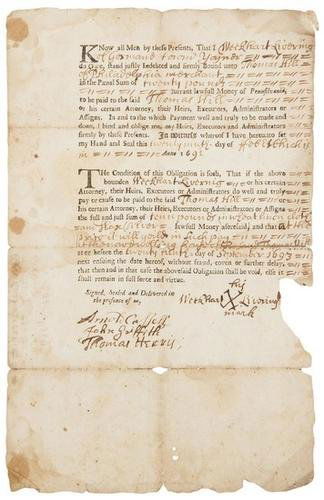 KNow all Men by these Presents, That I Weekhart Livering
of Germand towne Yeoman
do Owe, stand justly Indebted and firmly Bound unto Thomas Hill
of Philadelphia merchant
in the Penal Sum of twenty pounds
currant lawfull Money of Pensilvania,
to be paid to the said Thomas Hill
or his certain Attorney, their Heirs, Executors, Administrators or
Assigns. In and to the which Payment well and truly to be made and
done, I bind and oblige me, my Heirs, Executors and Administrators
firmly by these Presents. In witness whereof I have hereunto set
my Hand and Seal this day of
Anno 1692
THe Condition of this Obligation is such, That if the above
bounden Weekhart Livering or his certain
Attorney, their Heirs, Executors or Administrators do well and truly
pay or cause to be paid to the said Thomas Hill
his certain Attorney, their Heirs, Executors, Administrators or Assigns
the full and just sum of tenn pounds
lawfull Money aforesaid, and that at
or before the day of September 1693
next ensuing the date hereof, without fraud, coven or further delay,
that then and in that case the abovesaid Obligation shall be void, else it
shall remain in full force and virtue.
Signed, Sealed and Delivered in
the presence of us,
his
Weekhart X Livering
mark
Arnold Cassell
John Griffith
Thomas Herry